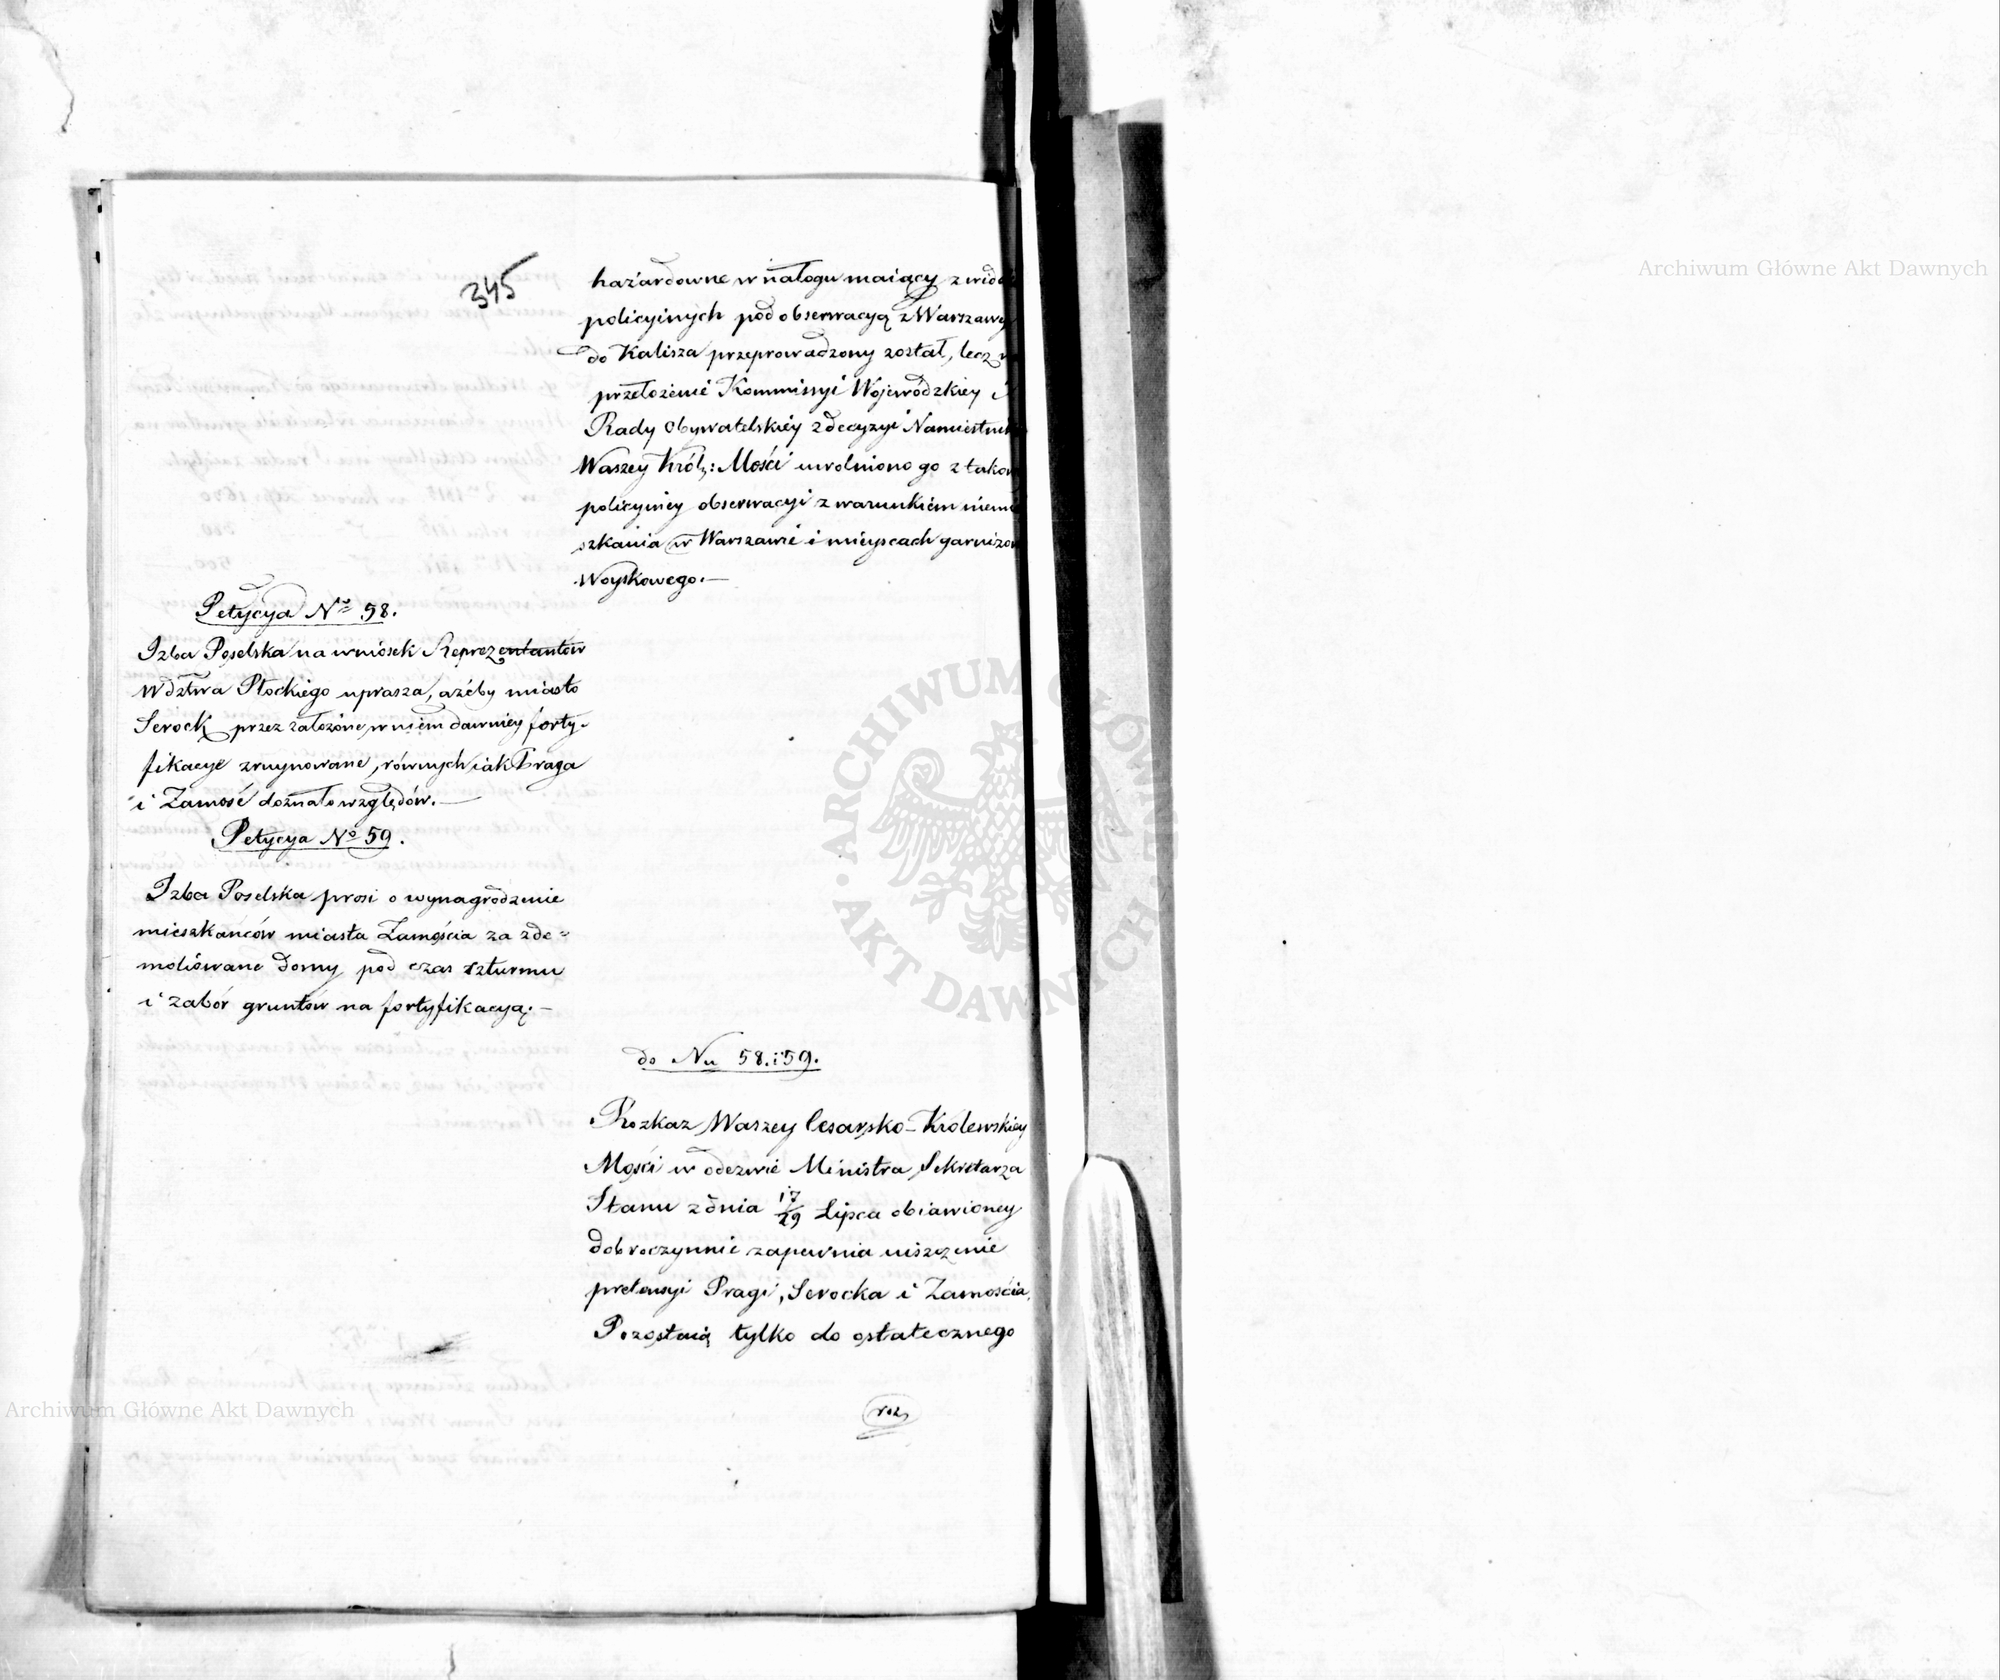 345
hazardowne w nałogu maiący z widok
policyinych pod obserwacyą z Warszawy
do Kalisza przeprowadzony został, lecz n
przełożenié Kommissyi Wojewódzkiey i
Rady Obywatelskiéy z decyzyi Namiestnik
Waszey Król: Mości uwolniono go z takow
policyiney obserwacyi z warunkiém niemi
szkania w Warszawie i mieyscach garnizon
Woyskowego.—
Petycya No 58.
Izba Poselska na wniosek Reprezentantów
Wdztwa Płockiego uprasza, ażéby miasto
Serock przez założone w niem dawniey forty-
fikacye zruynowane, równych iak Praga
i Zamość doznało względów.—
Petycya No 59.
Izba Poselska prosi o wynagrodzenie
mieszkańców miasta Zamościa za zde=
moliowane domy pod czas szturmu
i zabór gruntów na fortyfikacyą.—
do Nu 58. i 59.
Rozkaz Waszey Cesarsko-Królewskiey
Mości w odezwie Ministra Sekretarza
Stanu z dnia 17/29 Lipca obiawioney
dobroczynnie zapewnia uiszczenie
pretensyi Pragi, Serocka i Zamościa.
Pozostaią tylko do ostatecznego
roz
Archiwum Główne Akt Dawnych
Archiwum Główne Akt Dawnych
ARCHIWUM GŁÓWNE AKT DAWNYCH